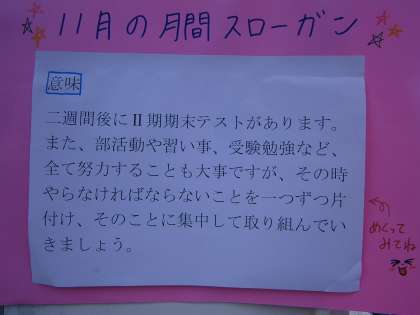 11月の月間スローガン
意味
二週間後にⅡ期期末テストがあります。
また、部活動や習い事、受験勉強など、
全て努力することも大事ですが、その時
やらなければならないことを一つずつ片
付け、そのことに集中して取り組んでい
きましょう。
めくって
みてね